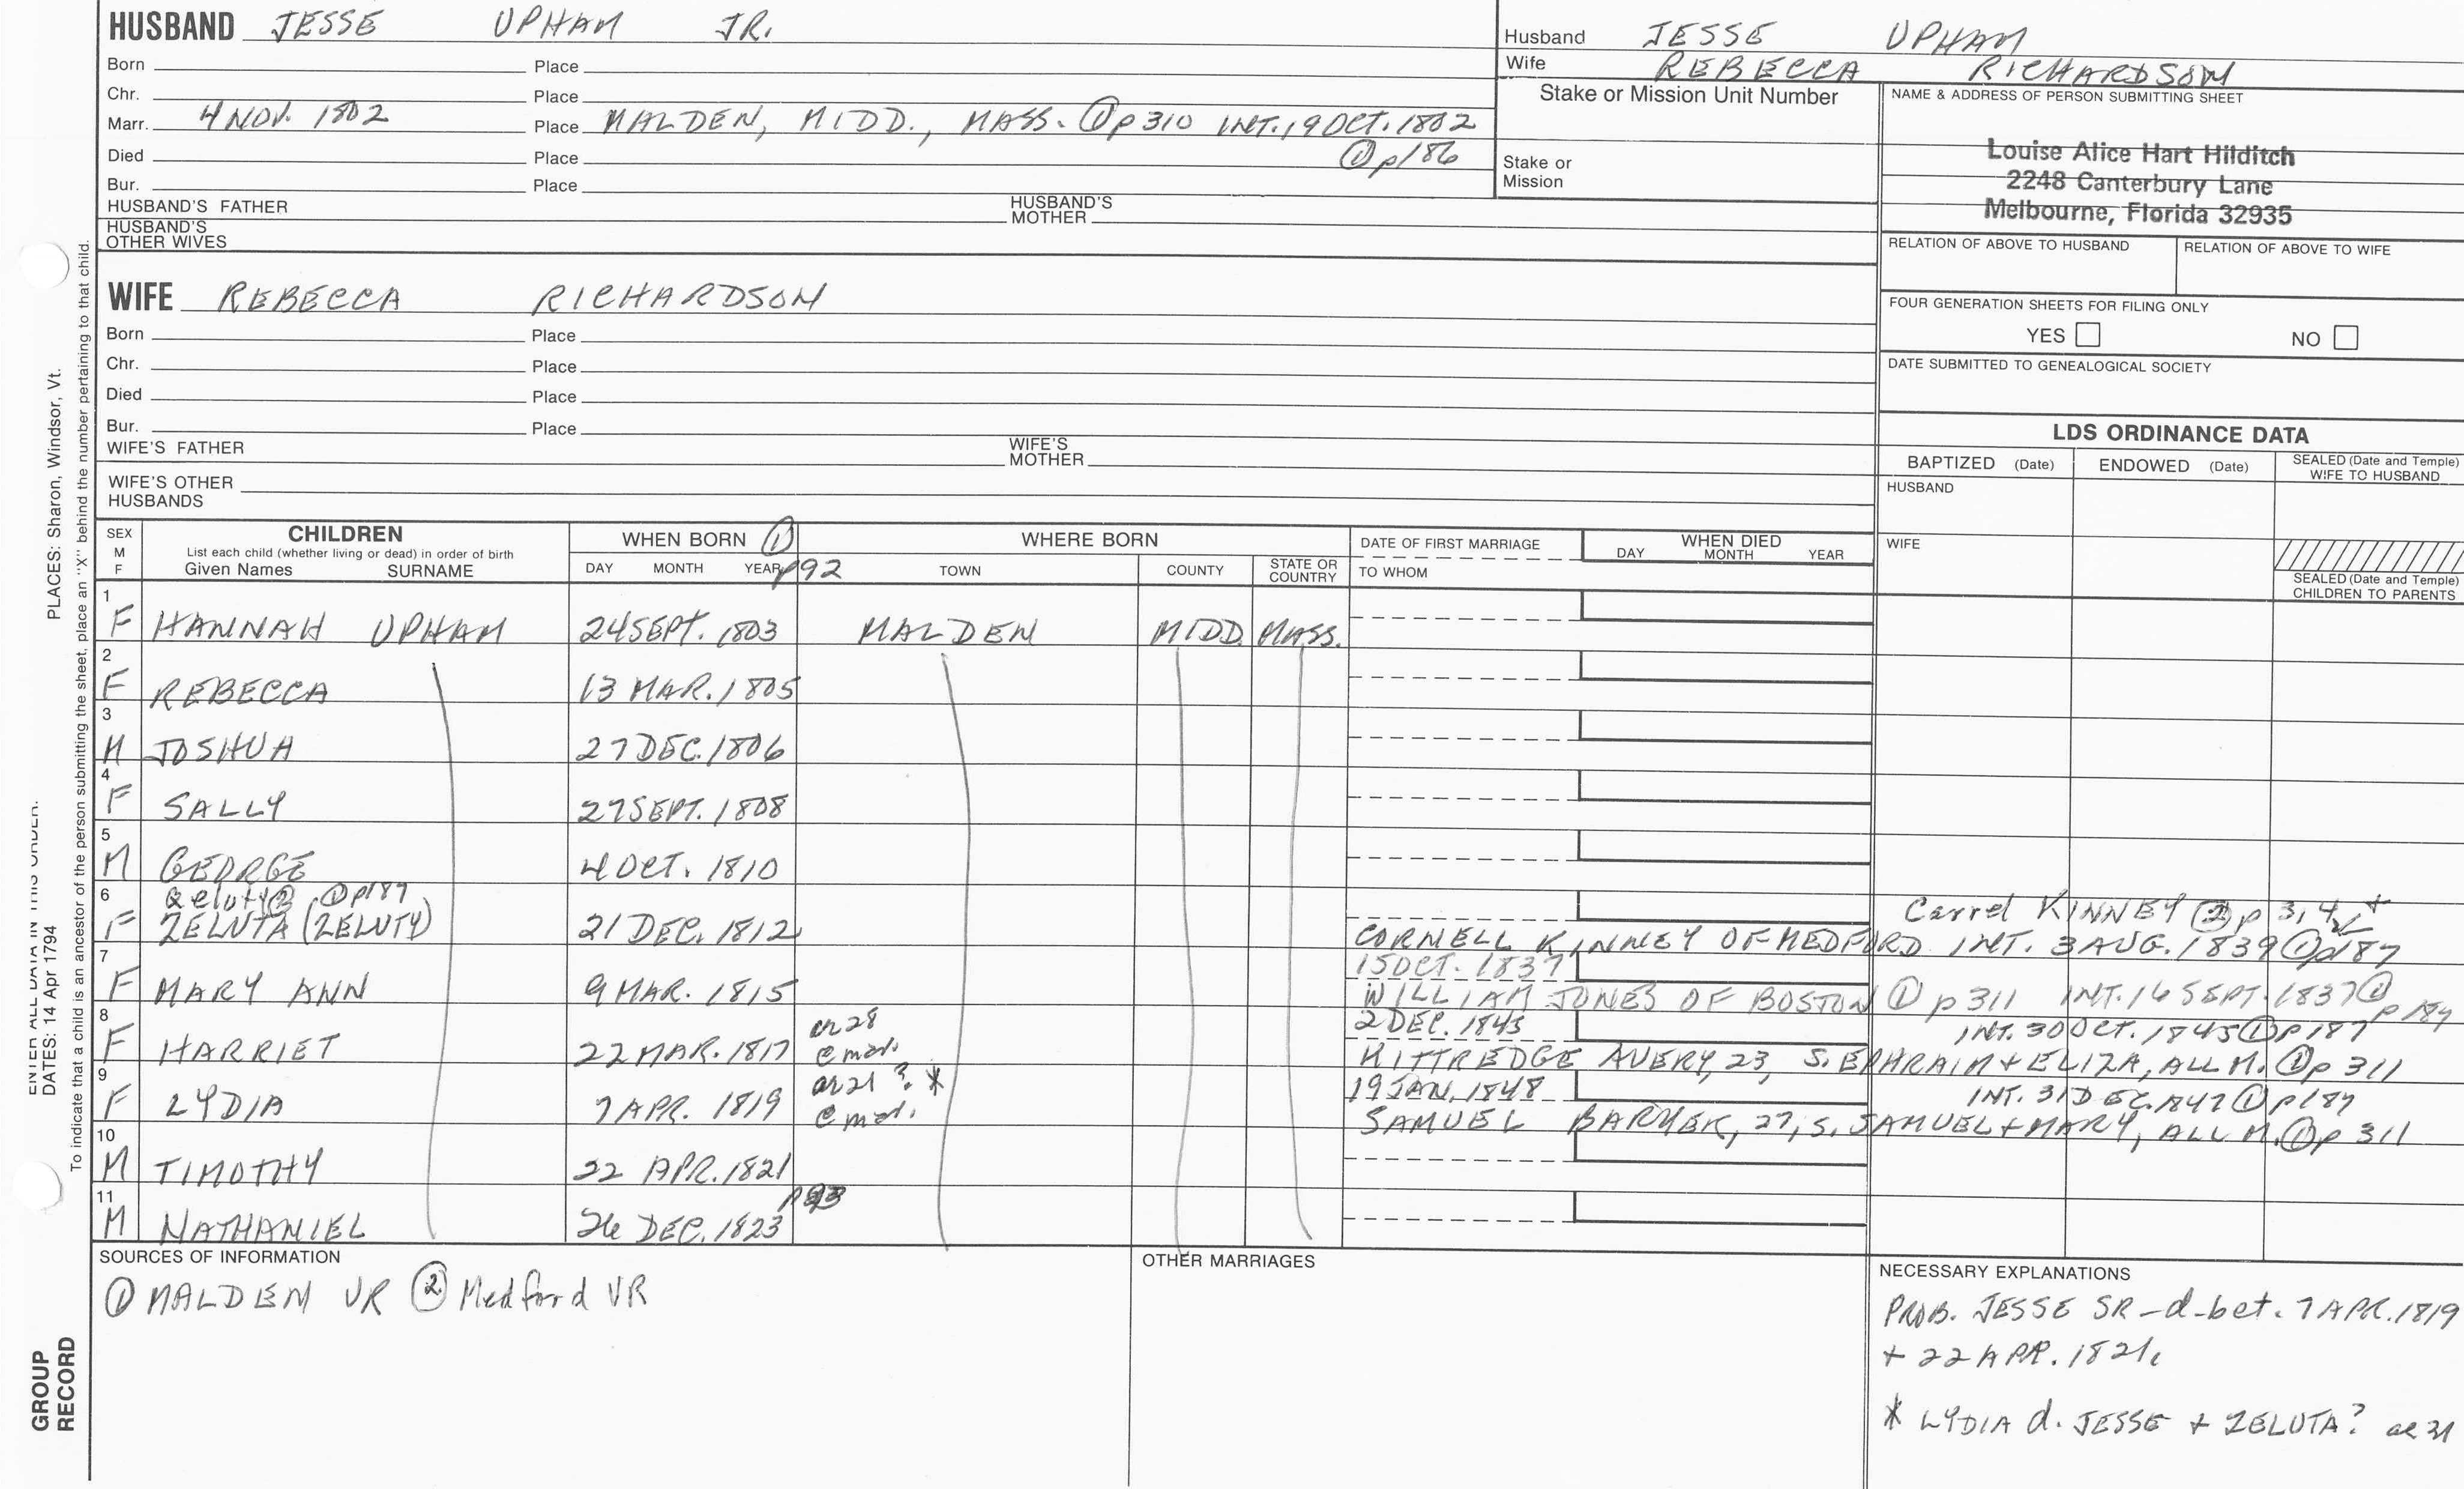 HUSBAND JESSE UPHAM JR.
Born Place
Chr. Place
Marr. 4 NOV. 1802 Place MALDEN, MIDD., MASS. ① p 310 INT. 19 OCT. 1802
① p 186
Died Place
Bur. Place
HUSBAND'S FATHER HUSBAND'S MOTHER
HUSBAND'S OTHER WIVES
Husband JESSE UPHAM
Wife REBECCA RICHARDSON
Stake or Mission Unit Number
Stake or Mission
NAME & ADDRESS OF PERSON SUBMITTING SHEET
Louise Alice Hart Hilditch
2248 Canterbury Lane
Melbourne, Florida 32935
RELATION OF ABOVE TO HUSBAND RELATION OF ABOVE TO WIFE
FOUR GENERATION SHEETS FOR FILING ONLY
YES NO
DATE SUBMITTED TO GENEALOGICAL SOCIETY
WIFE REBECCA RICHARDSON
Born Place
Chr. Place
Died Place
Bur. Place
WIFE'S FATHER WIFE'S MOTHER
WIFE'S OTHER HUSBANDS
LDS ORDINANCE DATA
BAPTIZED (Date) ENDOWED (Date) SEALED (Date and Temple) WIFE TO HUSBAND
HUSBAND
WIFE
SEALED (Date and Temple) CHILDREN TO PARENTS
SEX M F
CHILDREN
List each child (whether living or dead) in order of birth
Given Names SURNAME
WHEN BORN ① p92
DAY MONTH YEAR
WHERE BORN
TOWN COUNTY STATE OR COUNTRY
DATE OF FIRST MARRIAGE
TO WHOM
WHEN DIED
DAY MONTH YEAR
1 F HANNAH UPHAM 24 SEPT. 1803 MALDEN MIDD. MASS.
2 F REBECCA 13 MAR. 1805
3 M JOSHUA 27 DEC. 1806
4 F SALLY 27 SEPT. 1808
5 M GEORGE 4 OCT. 1810
6 Zeluty ② ① p187
Carrel KINNEY ② p 3, 4
F ZELUTA (ZELUTY) 21 DEC. 1812 CORNELL KINNEY OF MEDFORD INT. 3 AUG. 1839 ① p187
7 15 OCT. 1837
F MARY ANN 9 MAR. 1815 WILLIAM JONES OF BOSTON ① p 311 INT. 16 SEPT. 1837 ① p 187
8 ae 28 2 DEC. 1845 INT. 30 OCT. 1845 ① p187
F HARRIET 22 MAR. 1817 @ mar. KITTREDGE AVERY, 23, S. EPHRAIM + ELIZA, ALL M. ① p 311
9 ae 21 ? * 19 JAN. 1848 INT. 31 DEC. 1847 ① p187
F LYDIA 7 APR. 1819 @ mar. SAMUEL 27, S. SAMUEL + MARY, ALL M. ① p 311
10 M TIMOTHY 22 APR. 1821
11 p93
M NATHANIEL 26 DEC. 1823
SOURCES OF INFORMATION
① MALDEN VR ② Medford VR
OTHER MARRIAGES
NECESSARY EXPLANATIONS
PROB. JESSE SR - d - bet. 7 APR. 1819
+ 22 APR. 1821.
* LYDIA d. JESSE + ZELUTA? ae 21
PLACES: Sharon, Windsor, Vt.
ENTER ALL DATA IN THIS ORDER:
DATES: 14 Apr 1794
To indicate that a child is an ancestor of the person submitting the sheet, place an "X" behind the number pertaining to that child.
GROUP
RECORD